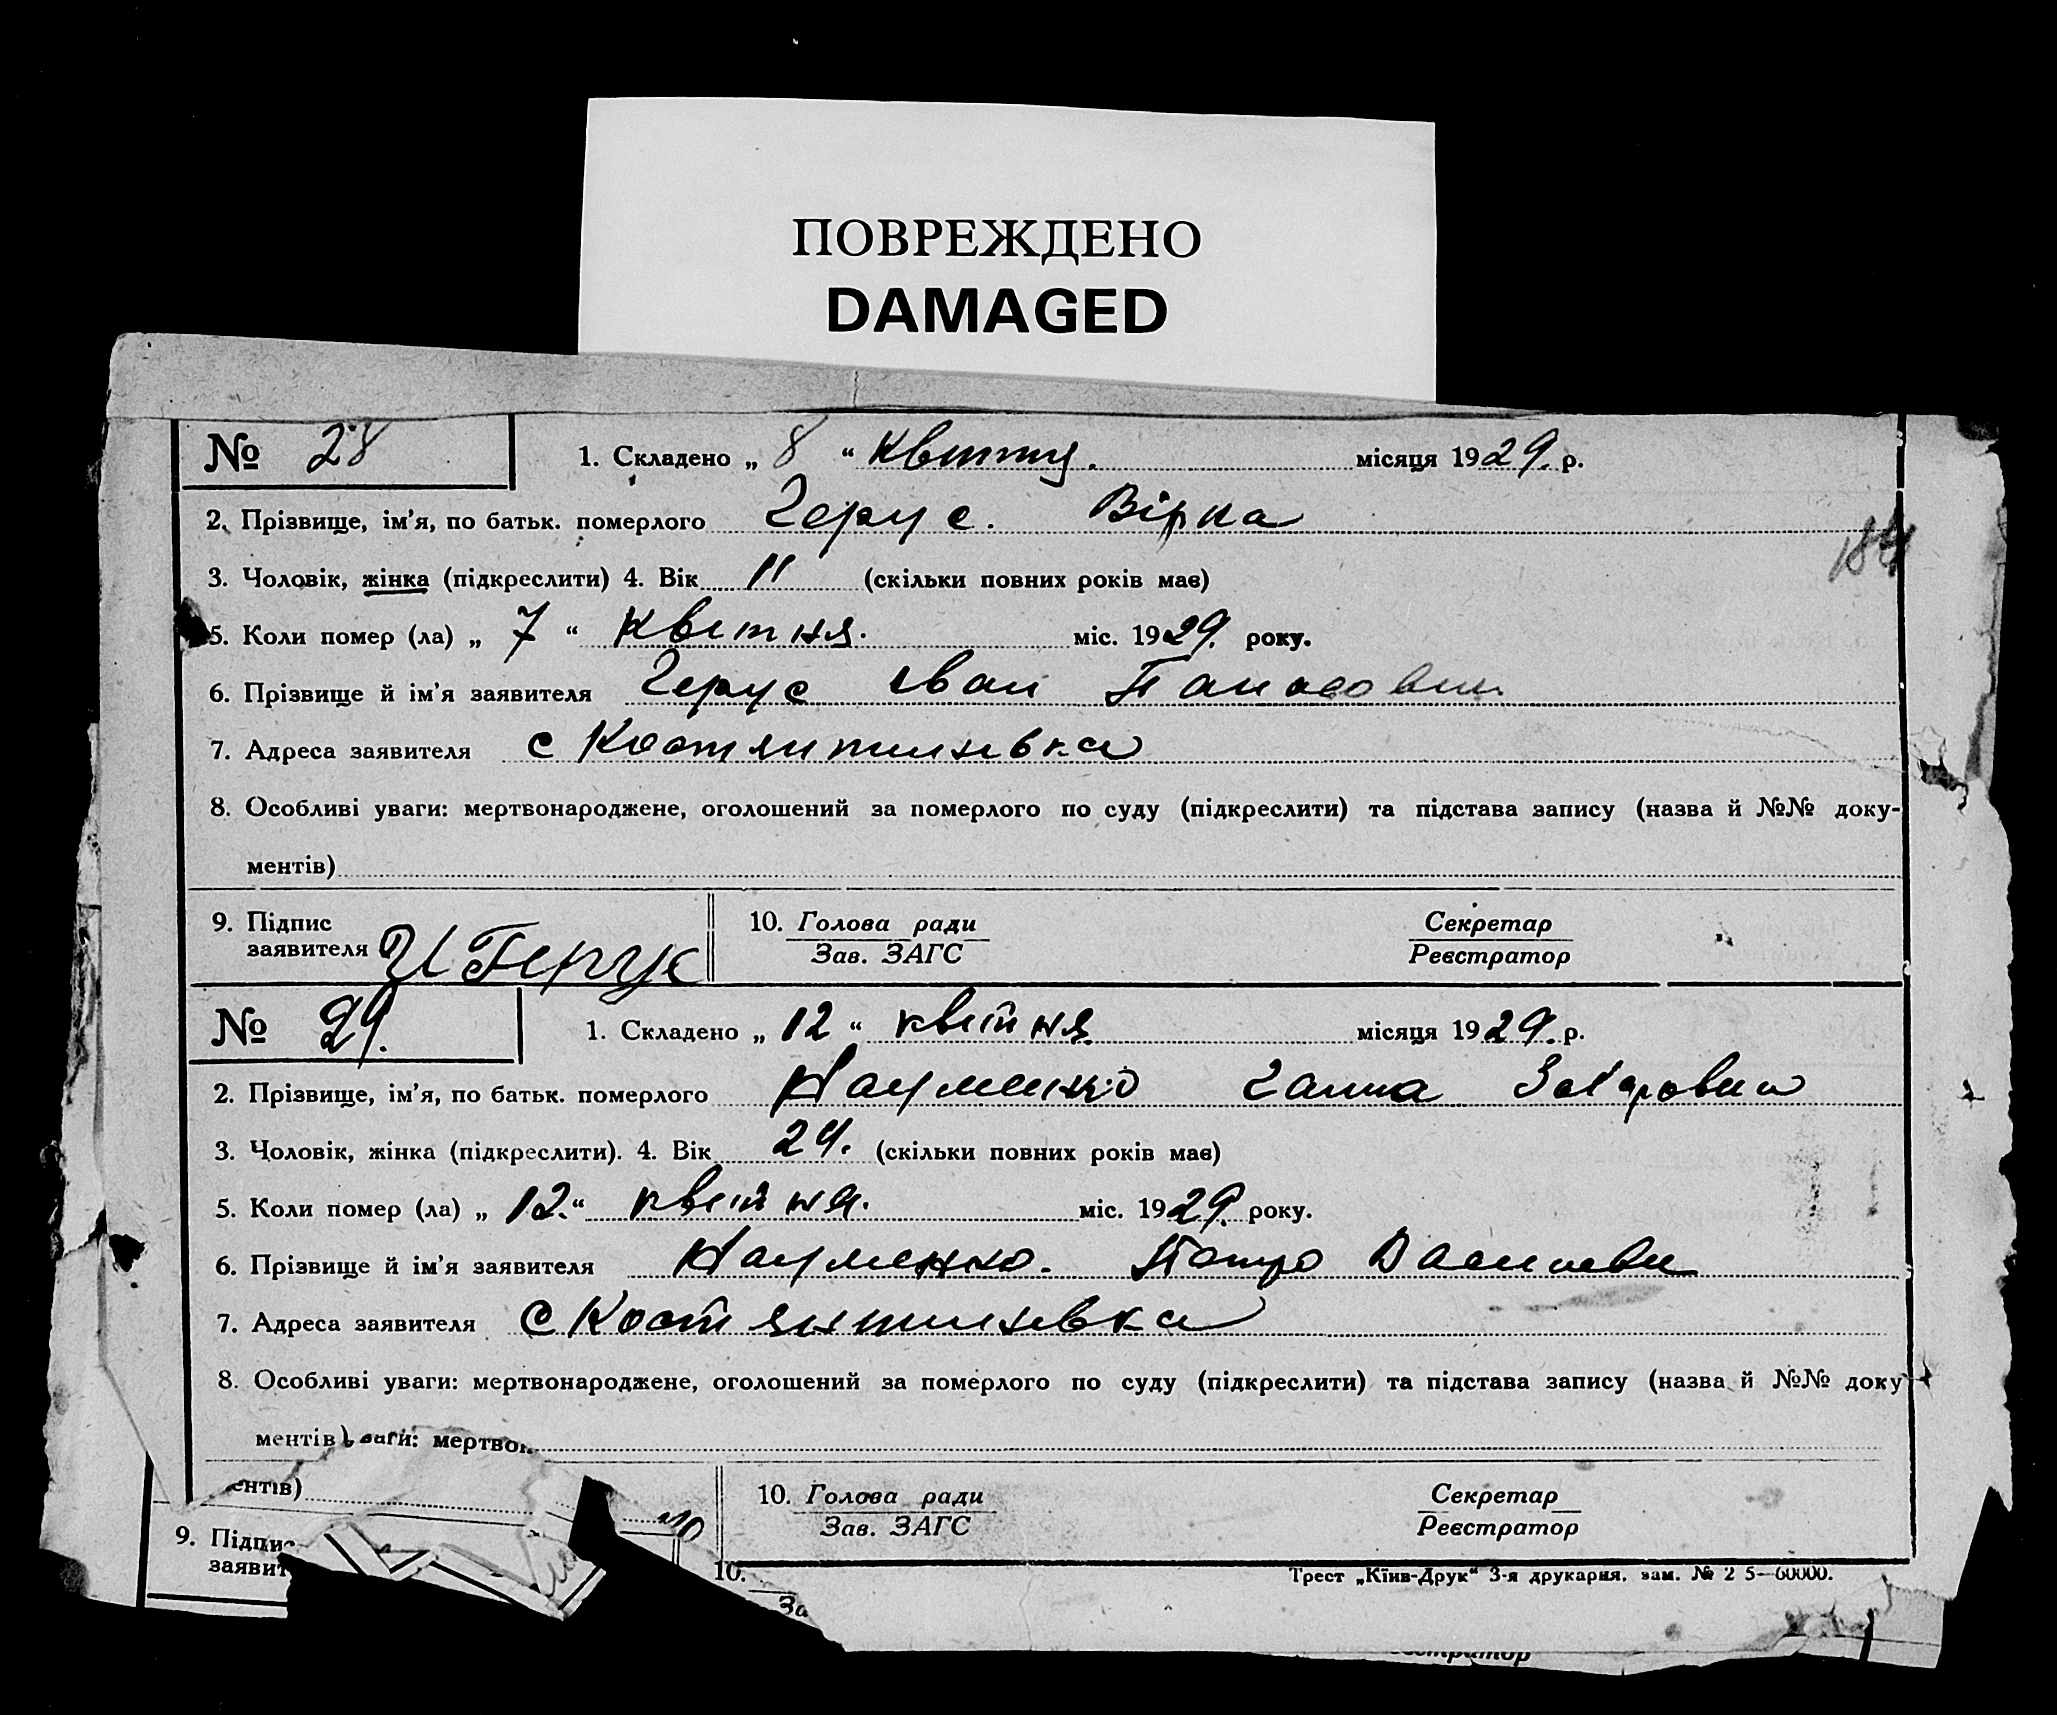 ПОВРЕЖДЕНО
DAMAGED
№ 28 1. Складено „ 8 “ Квітня. місяця 1929. р.
2. Прізвище, ім’я, по батьк. померлого Герус. Вірка
184
3. Чоловік, жінка (підкреслити) 4. Вік 11 (скільки повних років має)
5. Коли помер (ла) „ 7 “ Квітня. міс. 1929. року.
6. Прізвище й ім’я заявителя Герус Іван Панасович
7. Адреса заявителя с Костянтинівка
8. Особливі уваги: мертвонароджене, оголошений за померлого по суду (підкреслити) та підстава запису (назва й №№ доку-
ментів)
9. Підпис заявителя И Герус 10. Голова ради Секретар
Зав. ЗАГС Реєстратор
№ 29. 1. Складено „ 12 “ квітня місяця 1929. р.
2. Прізвище, ім’я, по батьк. померлого Науменко Ганна Захаровна
3. Чоловік, жінка (підкреслити). 4. Вік 24. (скільки повних років має)
5. Коли помер (ла) „ 12. “ квітня. міс. 1929. року.
6. Прізвище й ім’я заявителя Науменко. Петро Василеви
7. Адреса заявителя с Костянтинівка
8. Особливі уваги: мертвонароджене, оголошений за померлого по суду (підкреслити) та підстава запису (назва й №№ доку
ментів
ентів)
10. Голова ради Секретар
Зав. ЗАГС Реєстратор
9. Підпис
заявит
10.
Трест „Київ-Друк“ 3-я друкарня. зам. № 2 5—60000.
За